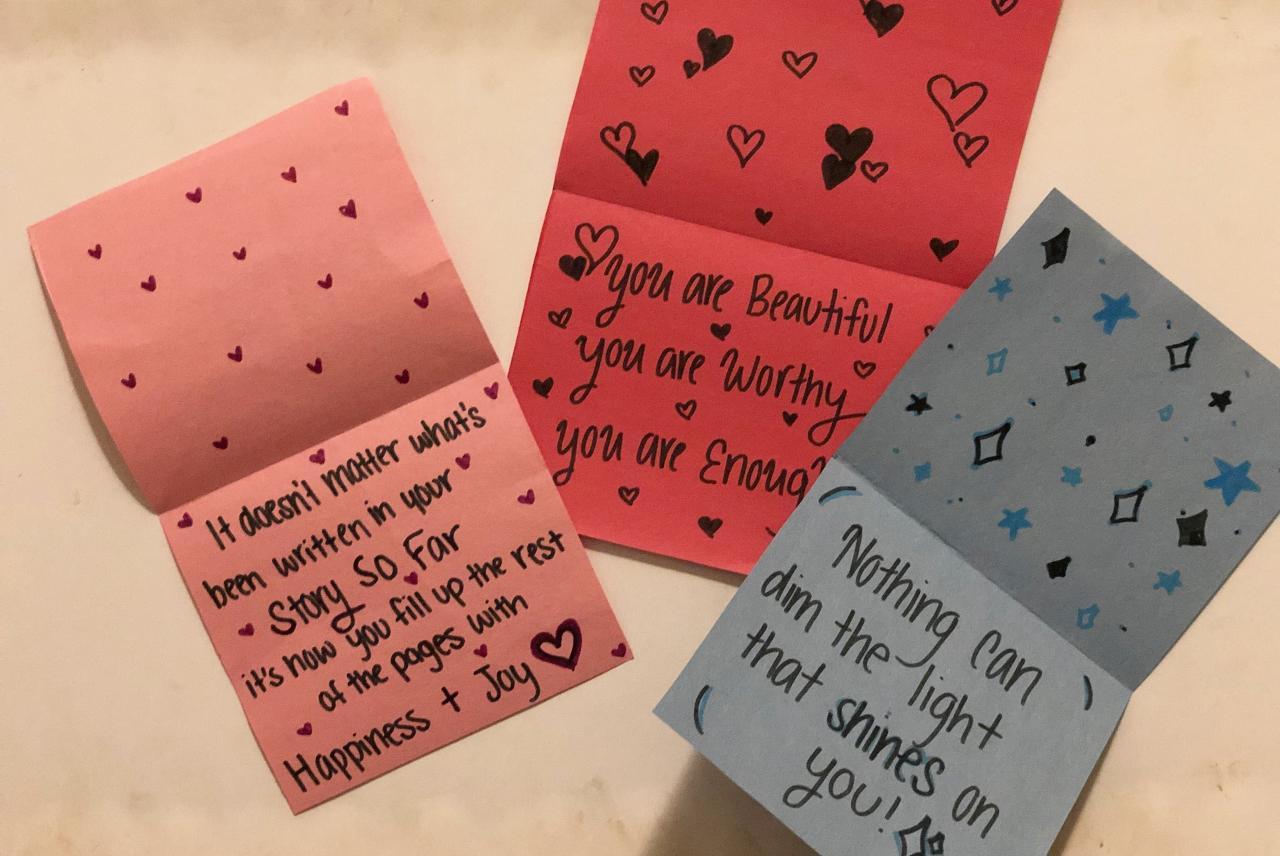 It doesn't matter what's
been written in your
Story So Far
it's how you fill up the rest
of the pages with
Happiness + Joy
you are Beautiful
you are Worthy
you are Enoug
Nothing can
dim the light
that shines on
you!